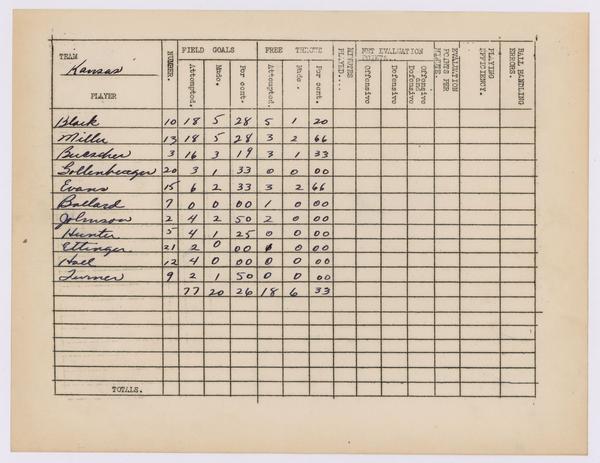 TEAM Kansas
PLAYER
NUMBER
FIELD GOALS
Attempted.
Made.
Per cent.
FREE THROWS
Attempted.
Made.
Per cent.
MINUTES PLAYED....
NET EVALUATION POINTS..
Offensive
Defensive
Offensive and Defensive
EVALUATION POINTS PER MINUTE.
PLAYING EFFICIENCY.
BALL HANDLING ERRORS.
Black 10 18 5 28 5 1 20
Miller 13 18 5 28 3 2 66
Buescher 3 16 3 19 3 1 33
Gollenberger 20 3 1 33 0 0 00
Evans 15 6 2 33 3 2 66
Ballard 7 0 0 00 1 0 00
Johnson 2 4 2 50 2 0 00
Hunter 5 4 1 25 0 0 00
Ettinger 21 2 0 00 0 0 00
Hall 12 4 0 00 0 0 00
Turner 9 2 1 50 0 0 00
77 20 26 18 6 33
TOTALS.